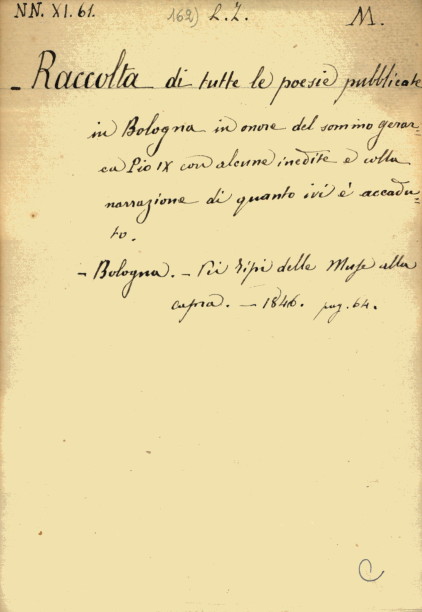 NN. XI. 61. 162) L. Z. M.
- Raccolta di tutte le poesie pubblicate
in Bologna in onore del sommo gerar-
ca Pio IX con alcune inedite e colla
narrazione di quanto ivi è accadu-
to.
- Bologna. - Pei Tipi delle Muse alla
capra. - 1846. pag. 64.
C